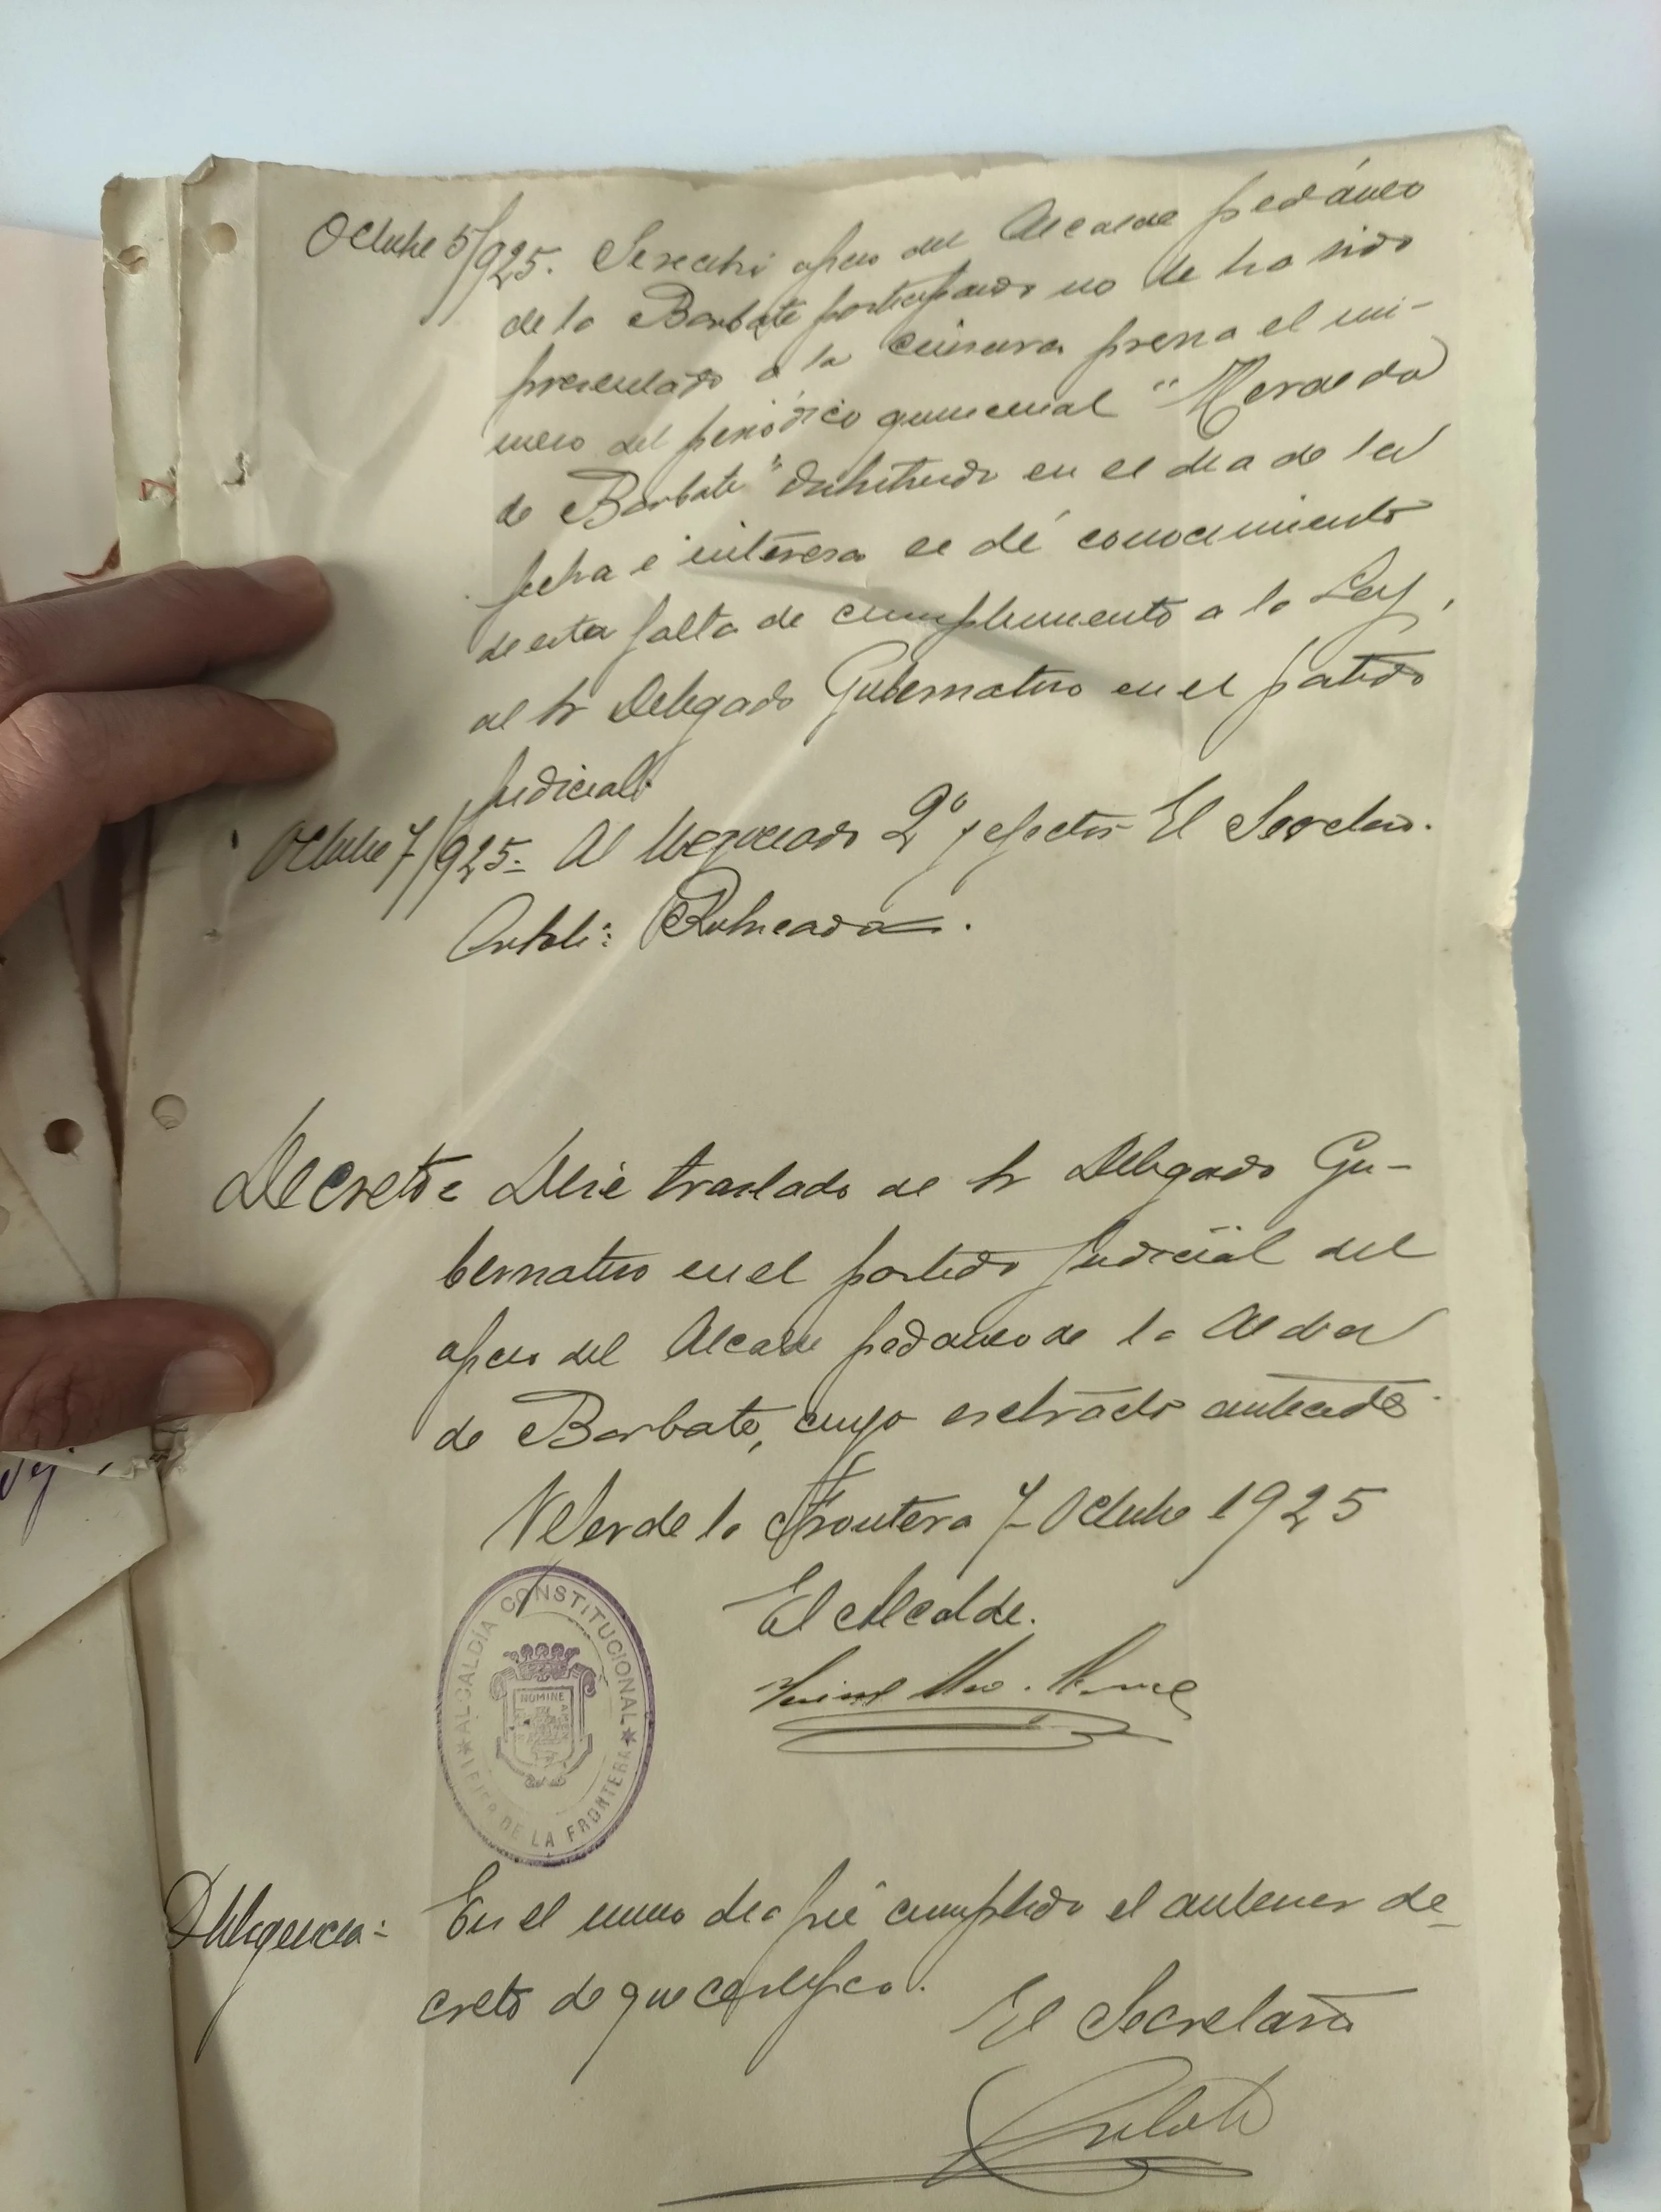 Octubre 5/925. Se recibió oficio del Alcalde pedáneo
de la Barbate participando no le ha sido
presentado a la censura previa el nú-
mero del periódico quincenal "Heraldo
de Barbate" distribuido en el dia de la
fecha e interesa se dé conocimiento
de esta falta de cumplimiento a la Ley,
al Sr Delegado Gubernativo en el partido
judicial.
Octubre 7/925= Al Negociado 2º y efectos El Secretario.
Rubricado.
Decreto= Dese traslado al Sr Delegado Gu-
bernativo en el partido judicial del
oficio del Alcalde pedaneo de la Aldea
de Barbate, cuyo extracto antecede.
Vejer de la Frontera 7 Octubre 1925
El Alcalde.
ALCALDÍA CONSTITUCIONAL
NOMINE
DE LA FRONTERA
Diligencia= En el mismo dia fué cumplido el anterior de-
creto de que certifico.
El Secretario